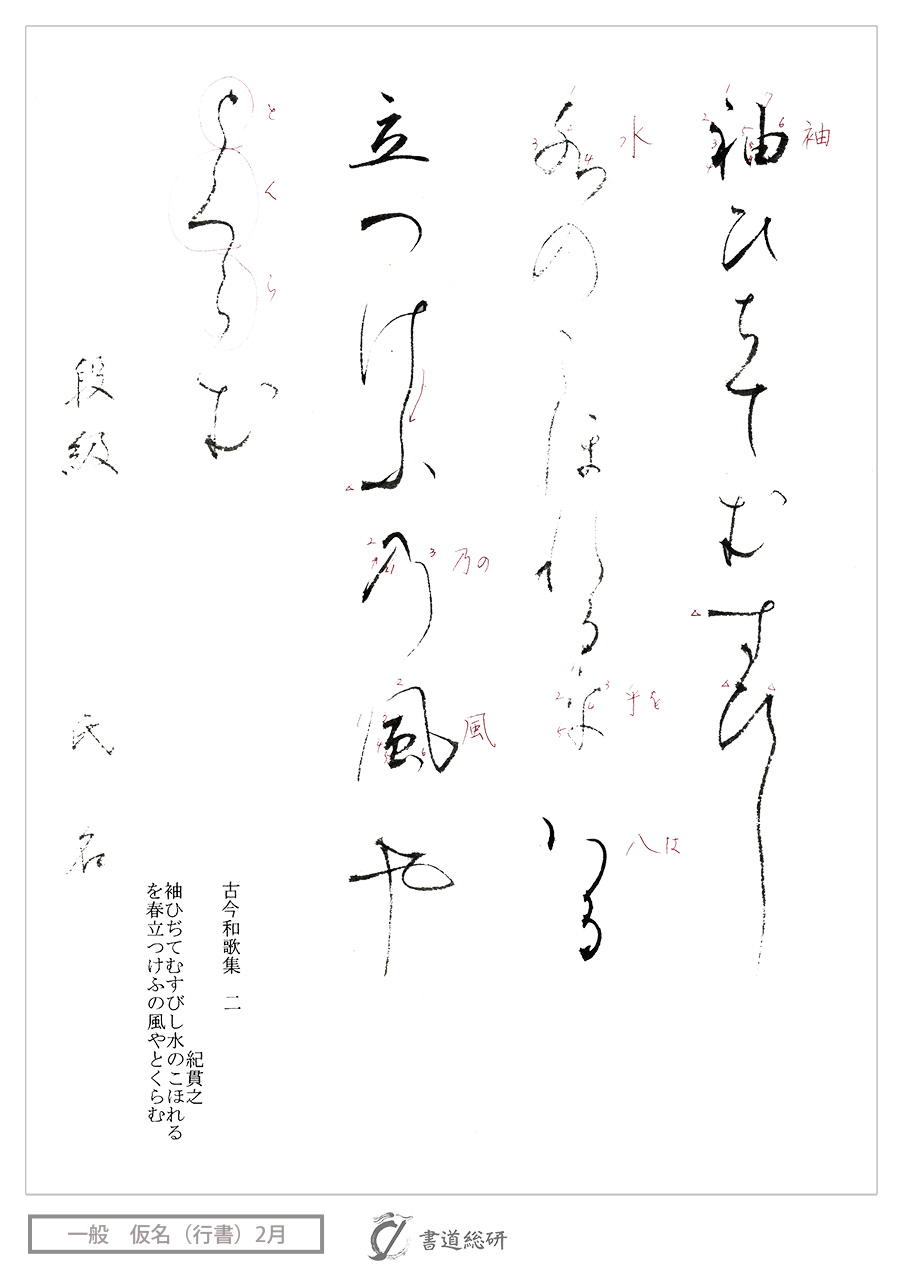 袖ひちてむすひし
袖
水のこほれる乎八る
水
乎を
八は
立つけふ乃風や
乃の
風
とくらむ
と
く
ら
段級 氏名
古今和歌集 二
紀貫之
袖ひぢてむすびし水のこほれる
を春立つけふの風やとくらむ
一般 仮名（行書）2月
書道総研